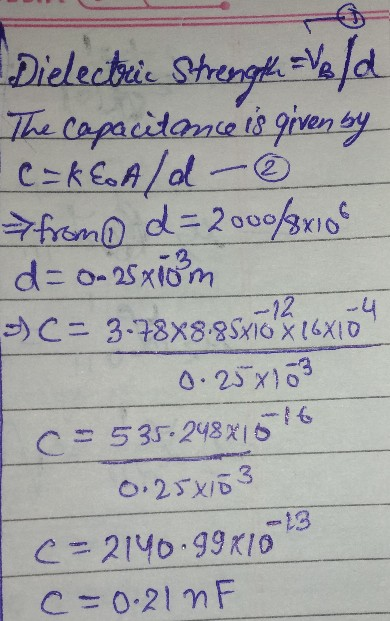 ①
Dielectric Strength = V_B/d
The capacitance is given by
C = K ε₀A/d — ②
⇒ from ① d = 2000/8×10⁶
d = 0.25×10⁻³ m
⇒ C = 3.78×8.85×10⁻¹²×16×10⁻⁴
0.25×10⁻³
C = 535.248×10⁻¹⁶
0.25×10⁻³
C = 2140.99×10⁻¹³
C = 0.21 nF